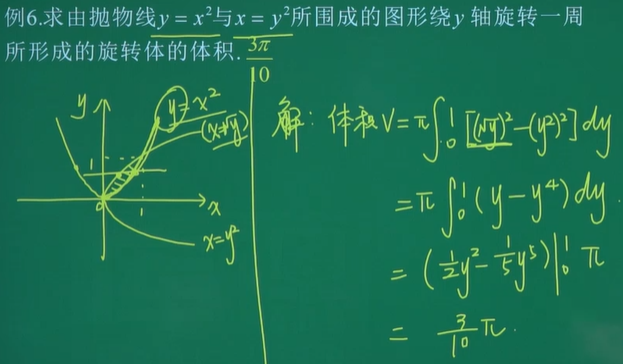 例6.求由抛物线y = x²与x = y²所围成的图形绕y 轴旋转一周
所形成的旋转体的体积. 3π/10
y
y=x²
(x=√y)
1
0
1
x
x=y²
解：体积V=π∫₀¹[(√y)²-(y²)²]dy
=π∫₀¹(y-y⁴)dy.
=(1/2y²-1/5y⁵)|₀¹ π
= 3/10 π.